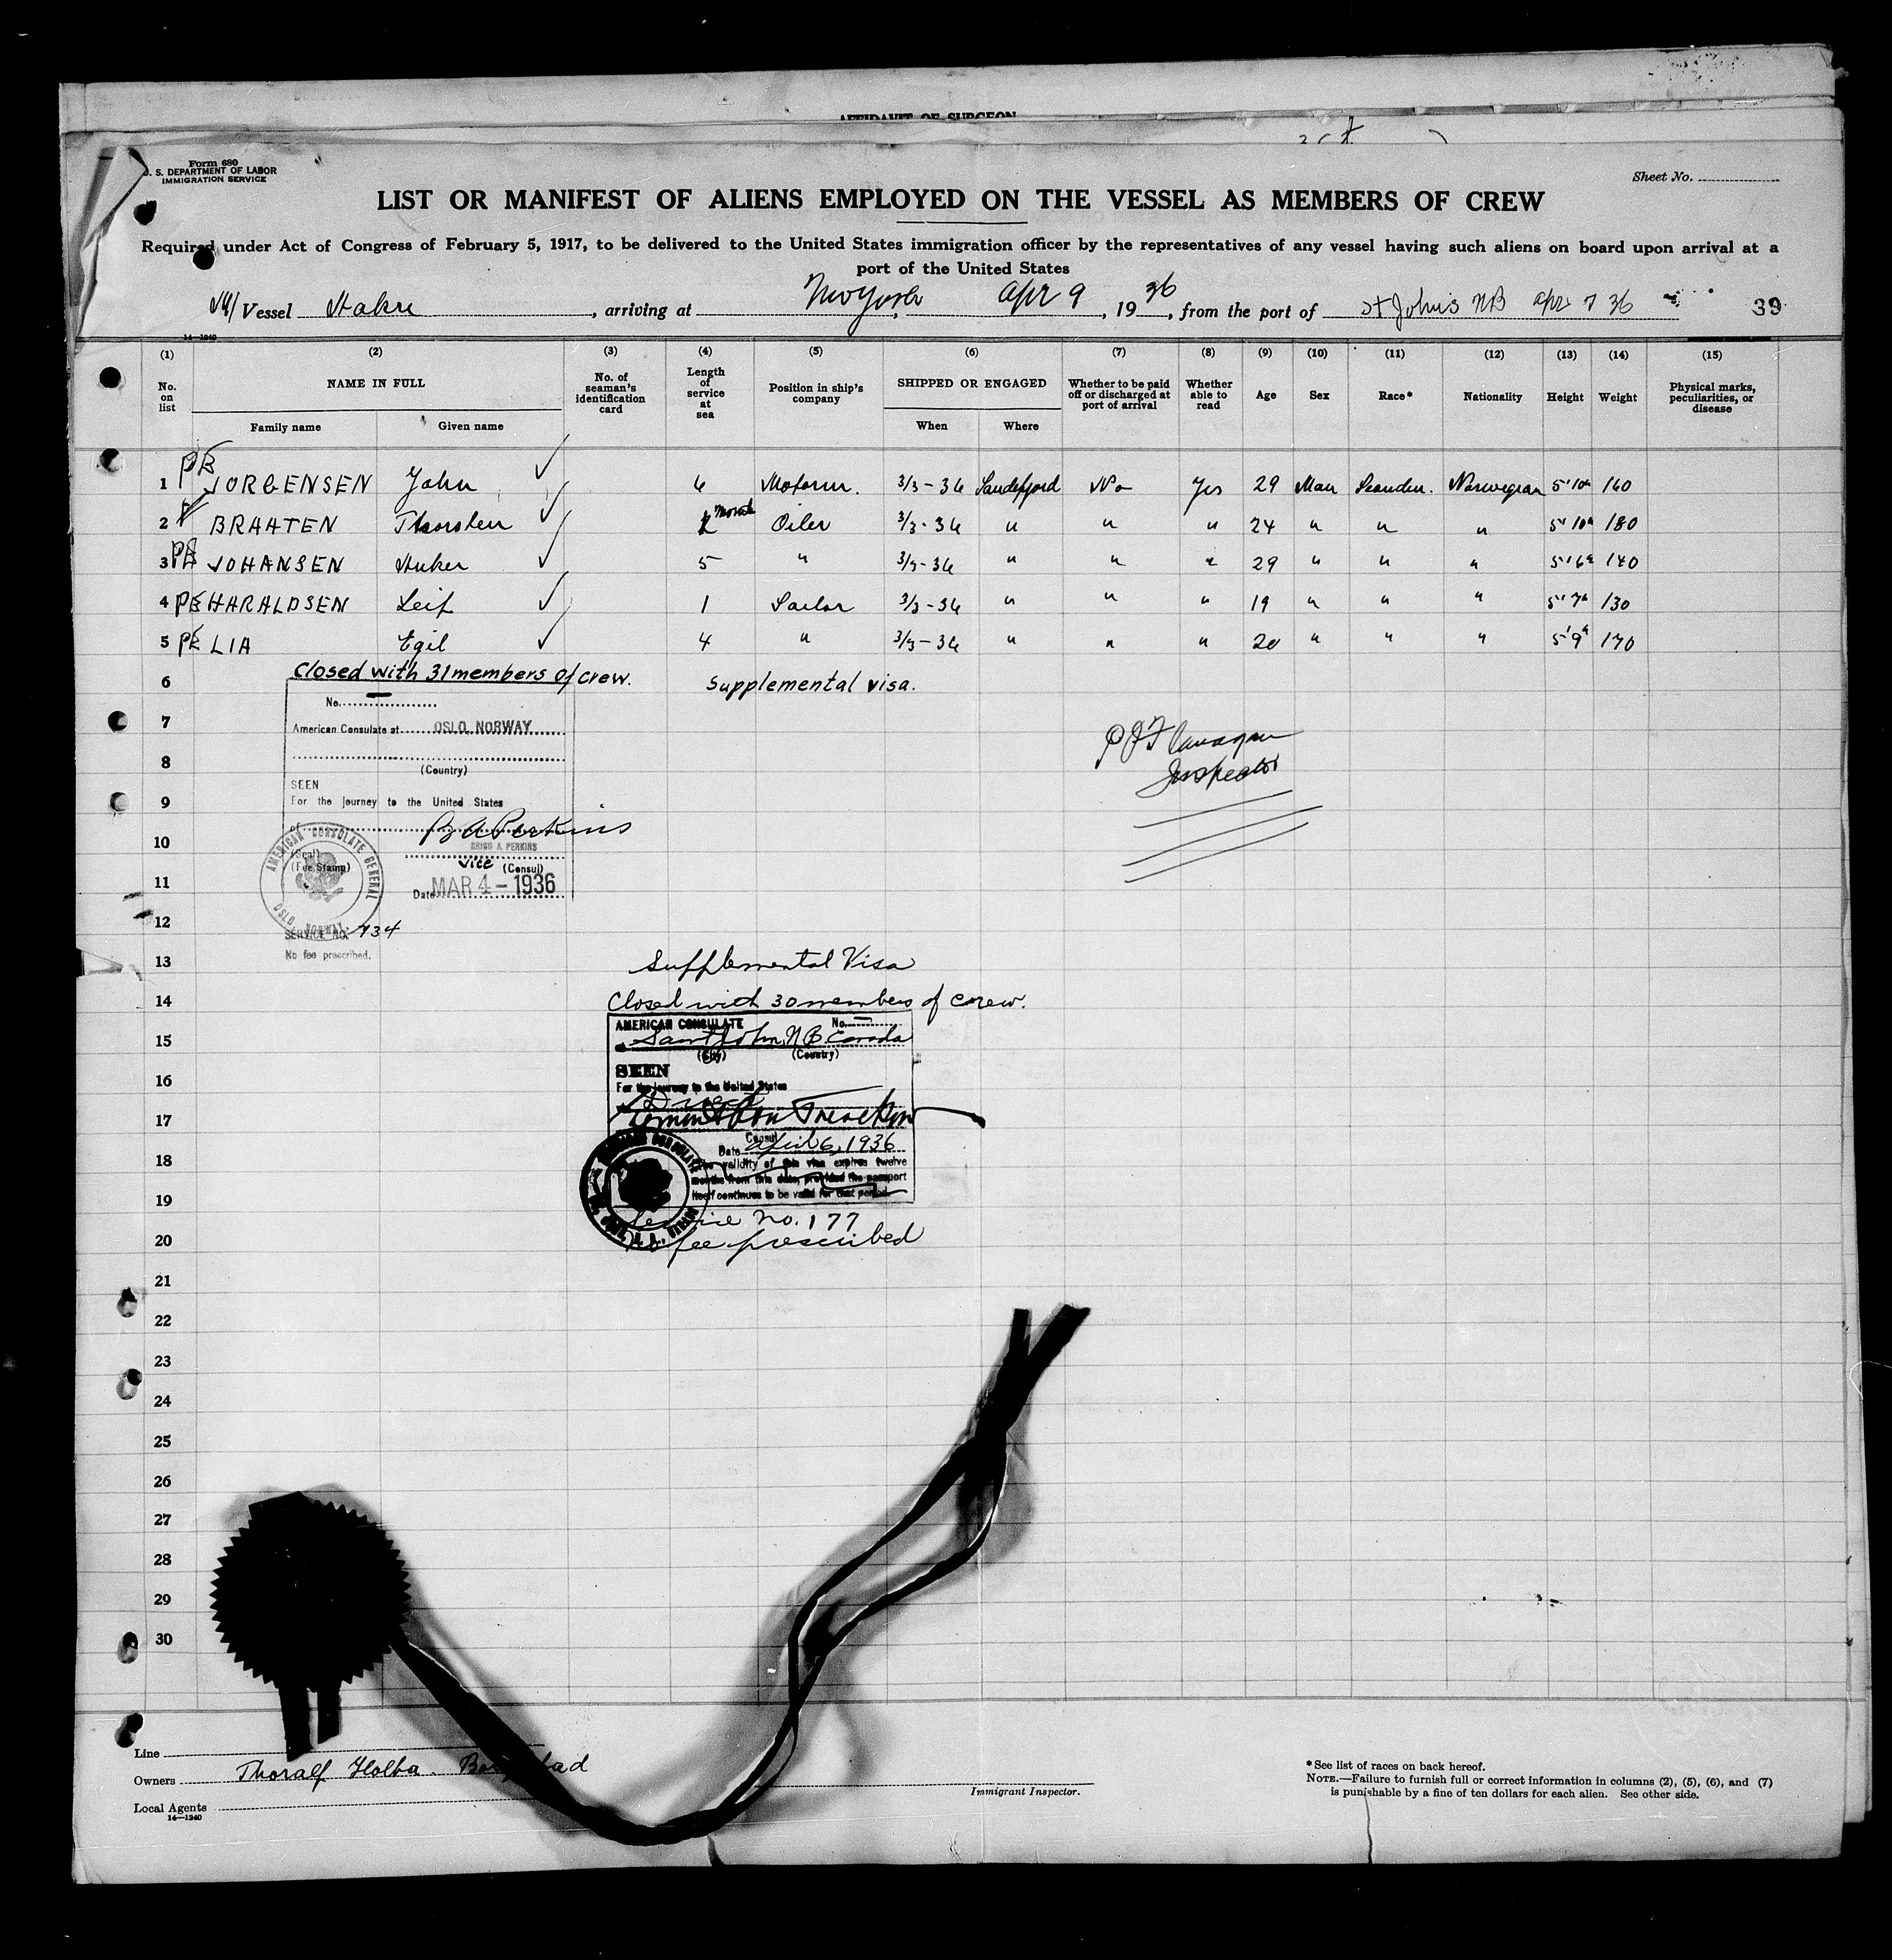 AFFIDAVIT OF SURGEON
Form 680
U. S. DEPARTMENT OF LABOR
IMMIGRATION SERVICE
Sheet No.
LIST OR MANIFEST OF ALIENS EMPLOYED ON THE VESSEL AS MEMBERS OF CREW
Required under Act of Congress of February 5, 1917, to be delivered to the United States immigration officer by the representatives of any vessel having such aliens on board upon arrival at a
port of the United States
Vessel, arriving at New York, Apr 9, 1936, from the port of St Johns NB Apr 7 36 39
14-1240
(1) (2) (3) (4) (5) (6) (7) (8) (9) (10) (11) (12) (13) (14) (15)
No. on list NAME IN FULL Family name Given name No. of seaman's identification card Length of service at sea Position in ship's company SHIPPED OR ENGAGED When Where Whether to be paid off or discharged at port of arrival Whether able to read Age Sex Race* Nationality Height Weight Physical marks, peculiarities, or disease
1 JORGENSEN John 6 Motorm. 3/3-36 Sandefjord No Yes 29 Man Scandin. Norwegian 5'10" 160
2 BRAATEN Thorsten Oiler 3/3-36 " " " 24 " " " 5'10" 180
3 JOHANSEN 5 " 3/3-36 " " " 29 " " " 5'6" 140
4 HARALDSEN Leif 1 Sailor 3/3-36 " " " 19 " " " 5'7" 130
5 LIA Egil 4 " 3/3-36 " " " 20 " " " 5'9" 170
Closed with 31 members of crew.
6 Supplemental visa.
No.
7
American Consulate at OSLO, NORWAY
P J Flanagan
Inspector
8
(Country)
SEEN
9
For the journey to the United States
of B A Perkins
10
BRIGG A. PERKINS
(Seal)
(Fee Stamp)
vice (Consul)
11
Date MAR 4-1936
AMERICAN CONSULATE GENERAL
OSLO, NORWAY
12
SERVICE NO. 734
No fee prescribed.
13
Supplemental Visa
14
Closed with 30 members of crew.
AMERICAN CONSULATE No.
15
Saint John, N B Canada
(City) (Country)
16
SEEN
For the journey to the United States
17
Consul
Date April 6, 1936
18
The validity of this visa expires twelve
months from this date, provided the passport
19
itself continues to be valid for that period.
Service No. 177
20
No fee prescribed
21
22
23
24
25
26
27
28
29
30
Line
Owners Thoralf Holta.
Local Agents
14-1240
Immigrant Inspector.
*See list of races on back hereof.
NOTE.—Failure to furnish full or correct information in columns (2), (5), (6), and (7)
is punishable by a fine of ten dollars for each alien. See other side.